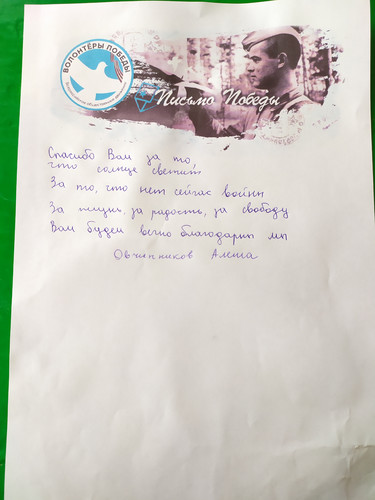 ВОЛОНТЁРЫ ПОБЕДЫ
Письмо Победы
Спасибо Вам за то,
что солнце светит,
За то, что нет сейчас войны
За жизнь за радость, за свободу
Вам будем вечно благодарны мы
Овчинников Алеша